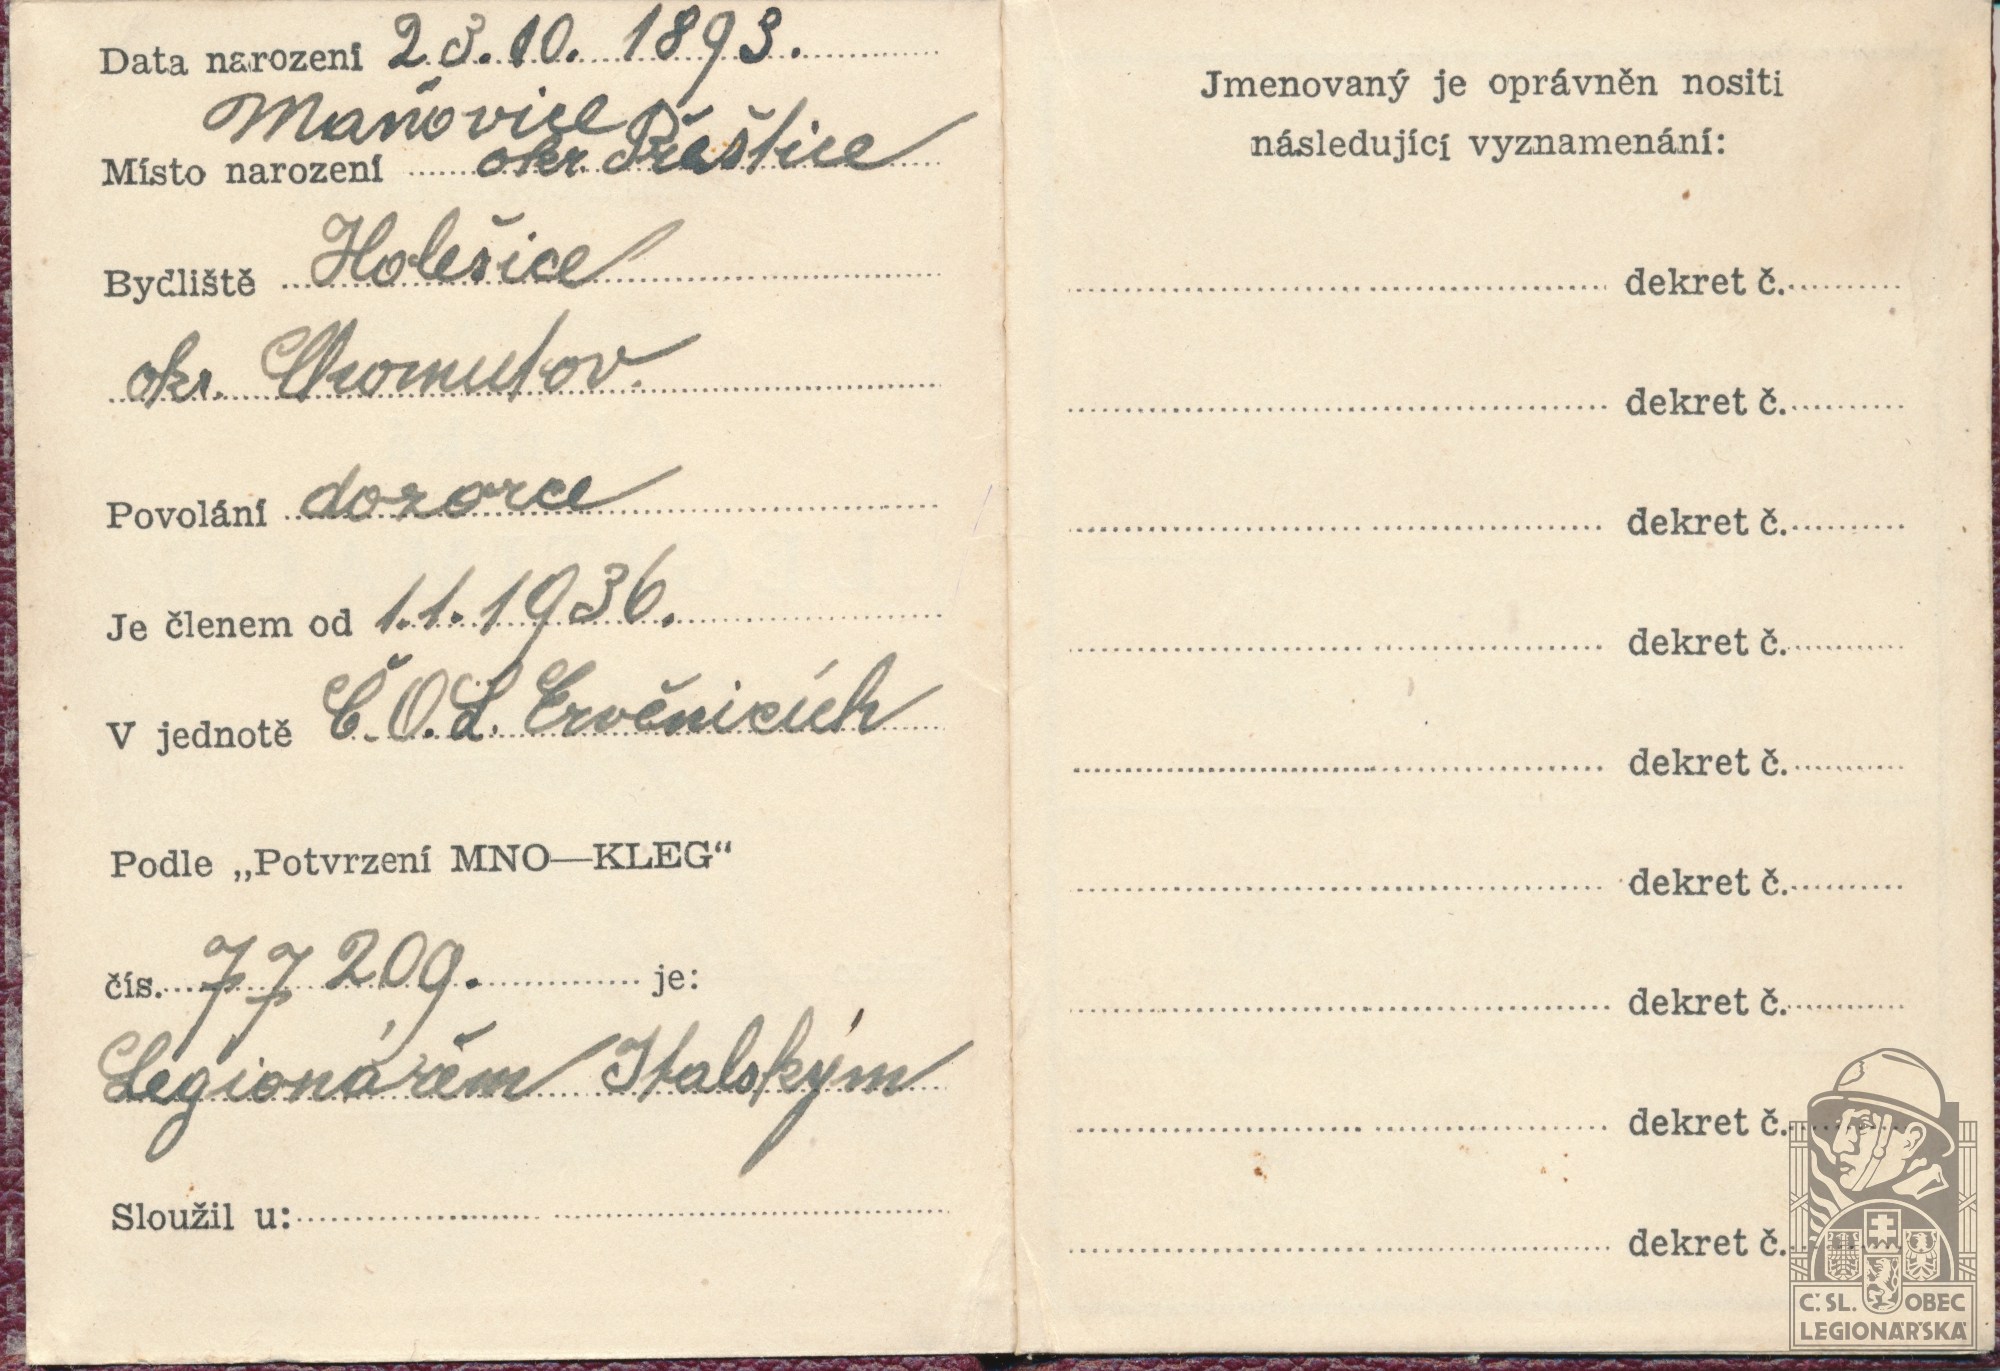 Data narození 23.10. 1893.
Maňovice
Místo narození okr. Přeštice
Bydliště Holešice
okr. Chomutov.
Povolání dozorce
Je členem od 1.1.1936.
V jednotě Č.O.L. Ervěnicích
Podle „Potvrzení MNO—KLEG“
čís. 77209. je:
Legionářem Italským
Sloužil u:
Jmenovaný je oprávněn nositi
následující vyznamenání:
dekret č.
dekret č.
dekret č.
dekret č.
dekret č.
dekret č.
dekret č.
dekret č.
dekret č.
Č.SL. OBEC
LEGIONÁŘSKÁ